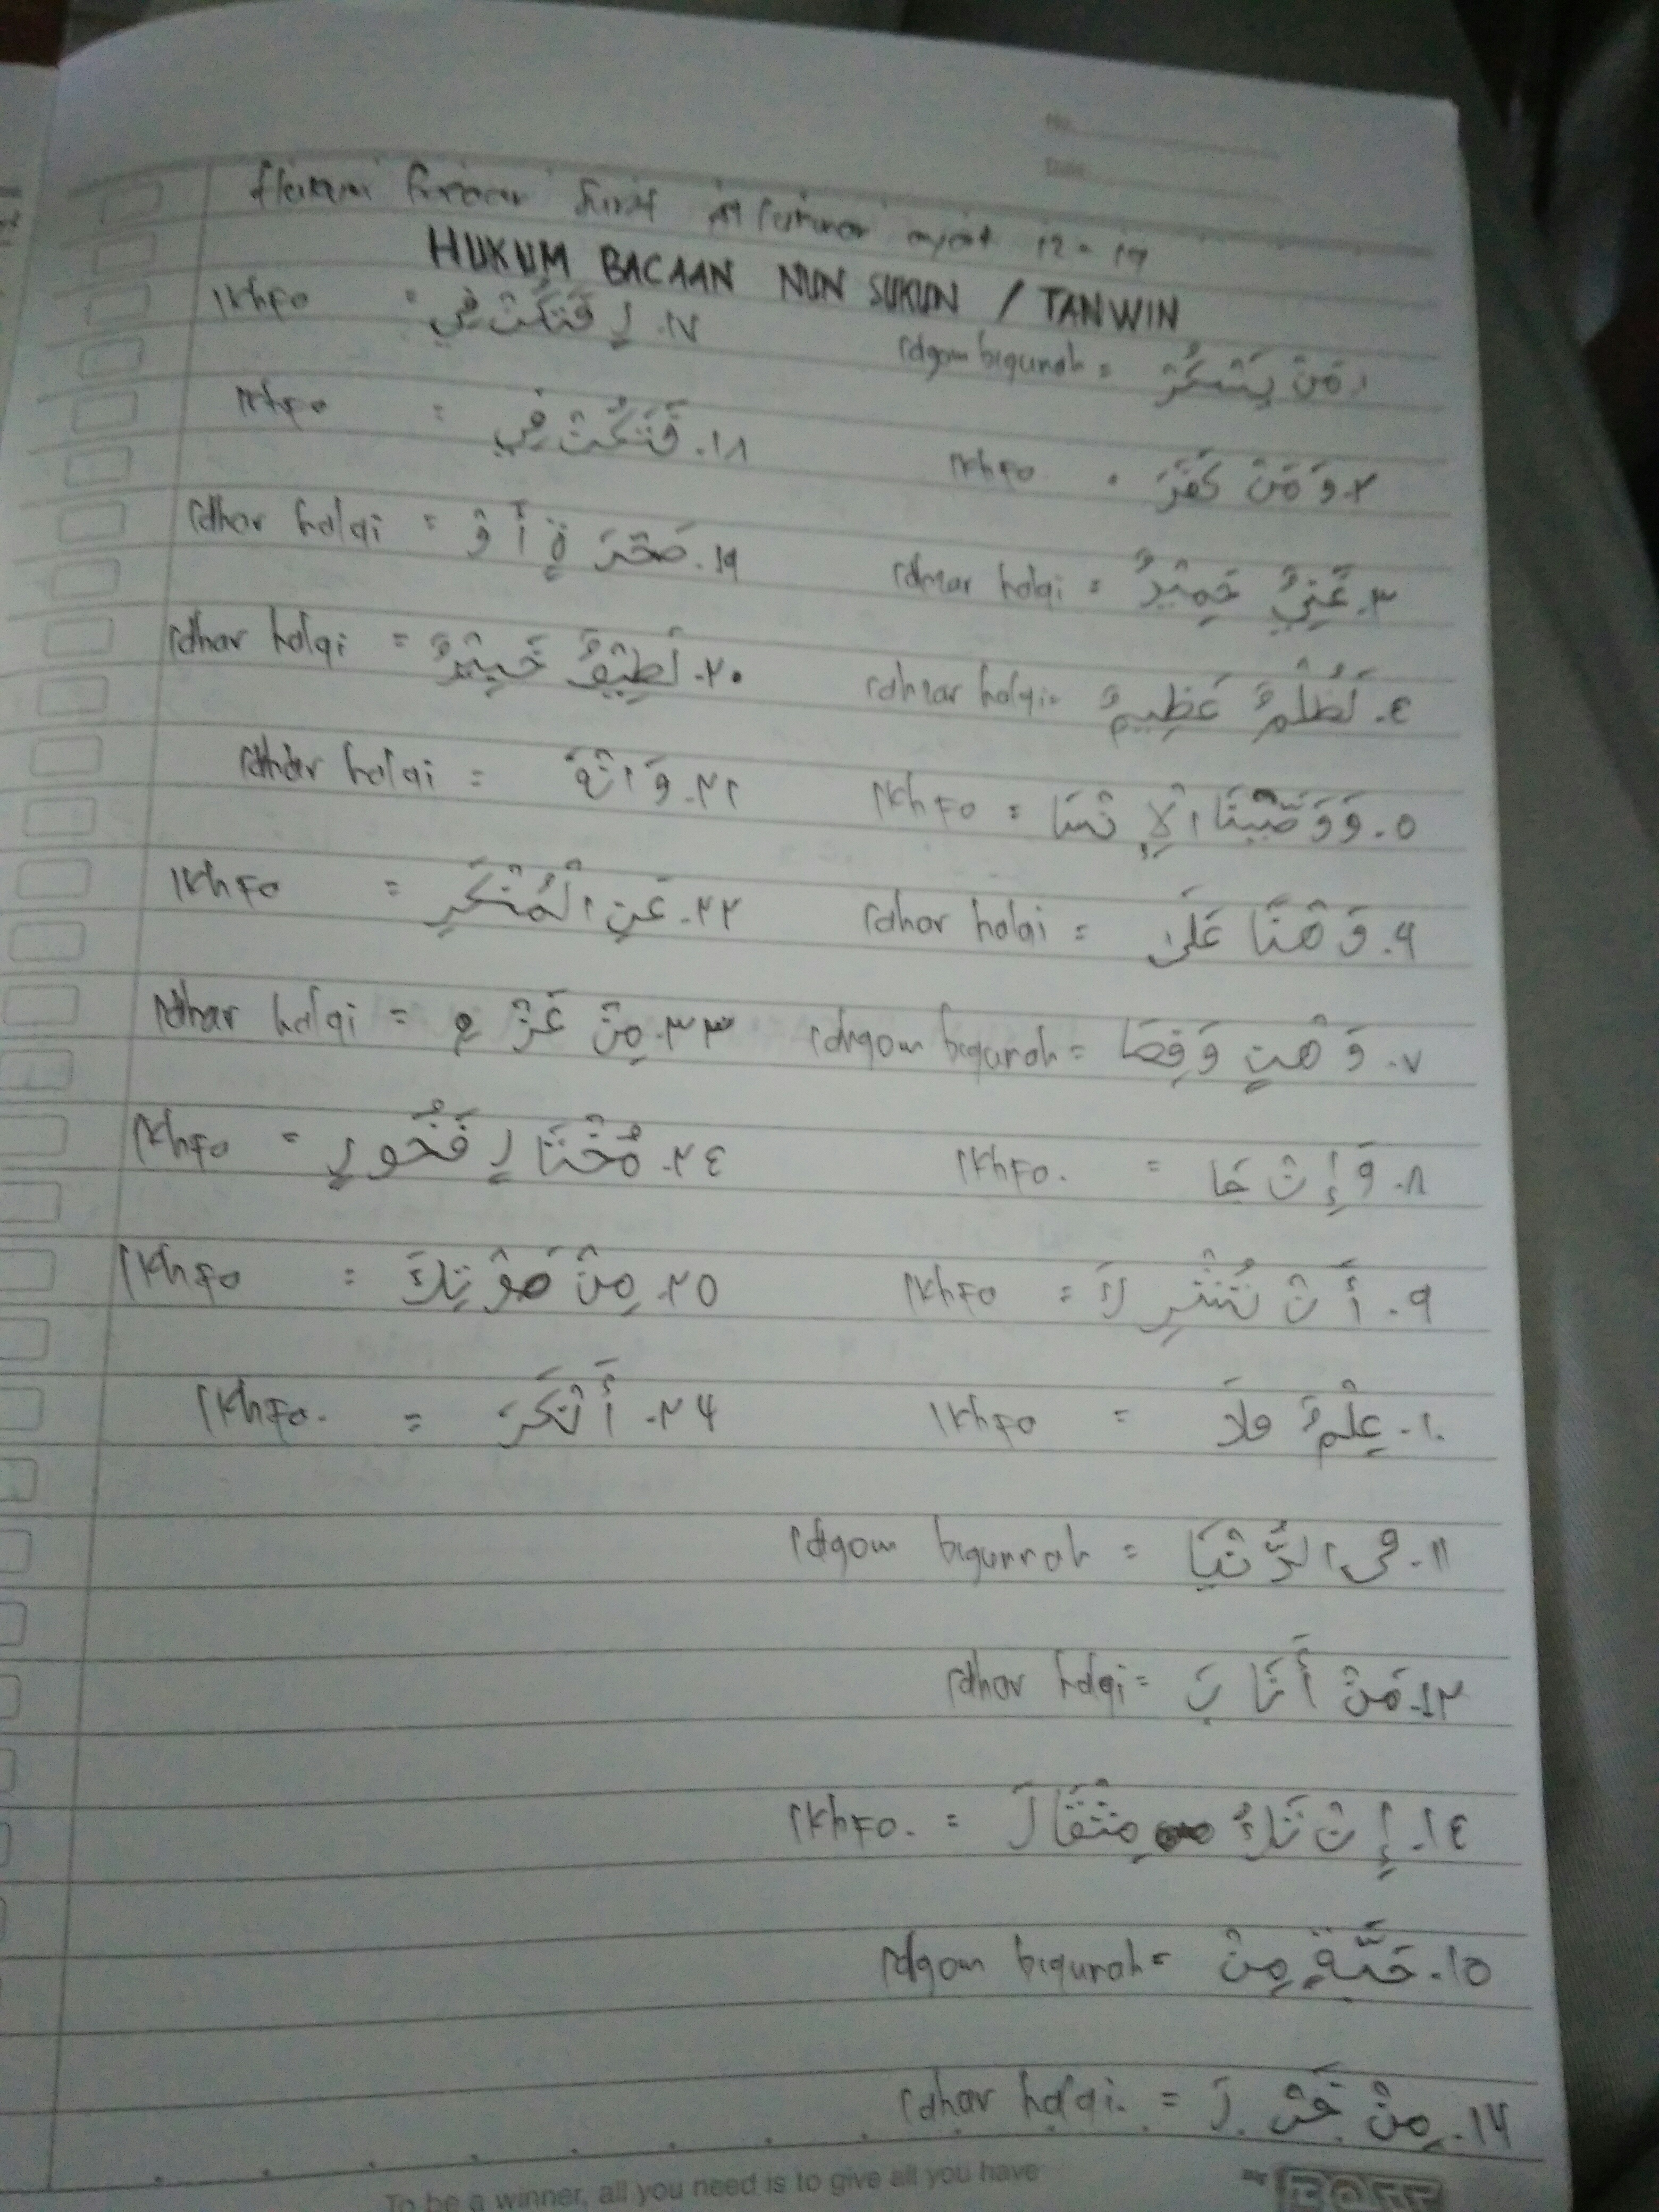 No.
Date
Hukum bacaan surat al lukman ayat 12 - 19
HUKUM BACAAN NUN SUKUN / TANWIN
مَنْ يَشْكُرْ = Idgom bigunah
٢. وَ مَنْ كَفَرَ Ikhfo
٣. غَنِيٌّ حَمِيْدٌ = Idhar halqi
٤. لَظُلْمٌ عَظِيمٌ = Idhar halqi
٥. وَوَصَّيْنَا الْإِ نْسَا = Ikhfo
٦. وَ هْنًا عَلَى = Idhar halqi
٧. وَ هْنٍ وَفِصَا = Idgom bigunah
٨. وَ إِنْ جَا = Ikhfo.
٩. أَ نْ تُشْرِ كَ = Ikhfo
١٠. عِلْمٌ فلَا = Ikhfo
١١. فى الدُّنْيَا = Idgom bigunnah
١٢. مَنْ أَنَا بَ = Idhar halqi
١٤. إِ نْ تَكُ مِثْقَا لَ = Ikhfo.
١٥. حَبَّةٍ مِنْ = Idgom bigunah
١٦. مِنْ خَرْ دَ = Idhar halqi.
١٧. لٍ فَتَكُنْ فِي = Ikhfo
١٨. فَتَكُنْ فِي : Ikhfo
١٩. صَخْرَ ةٍ أَ وْ = Idhar halqi
٢٠. لَطِيْفٌ خَبِيْرٌ = Idhar halqi
٢١. وَ انْهَ = Idhar halqi
٢٢. عَنِ الْمُنْكَرِ = Ikhfo
٣٣. مِنْ عَزْ م = Idhar halqi
٢٤. مُخْتَا لٍ فَخُورٍ = Ikhfo
٢٥. مِنْ صَوْتِكَ = Ikhfo
٢٦. أَنْكَرَ = Ikhfo.
To be a winner, all you need is to give all you have